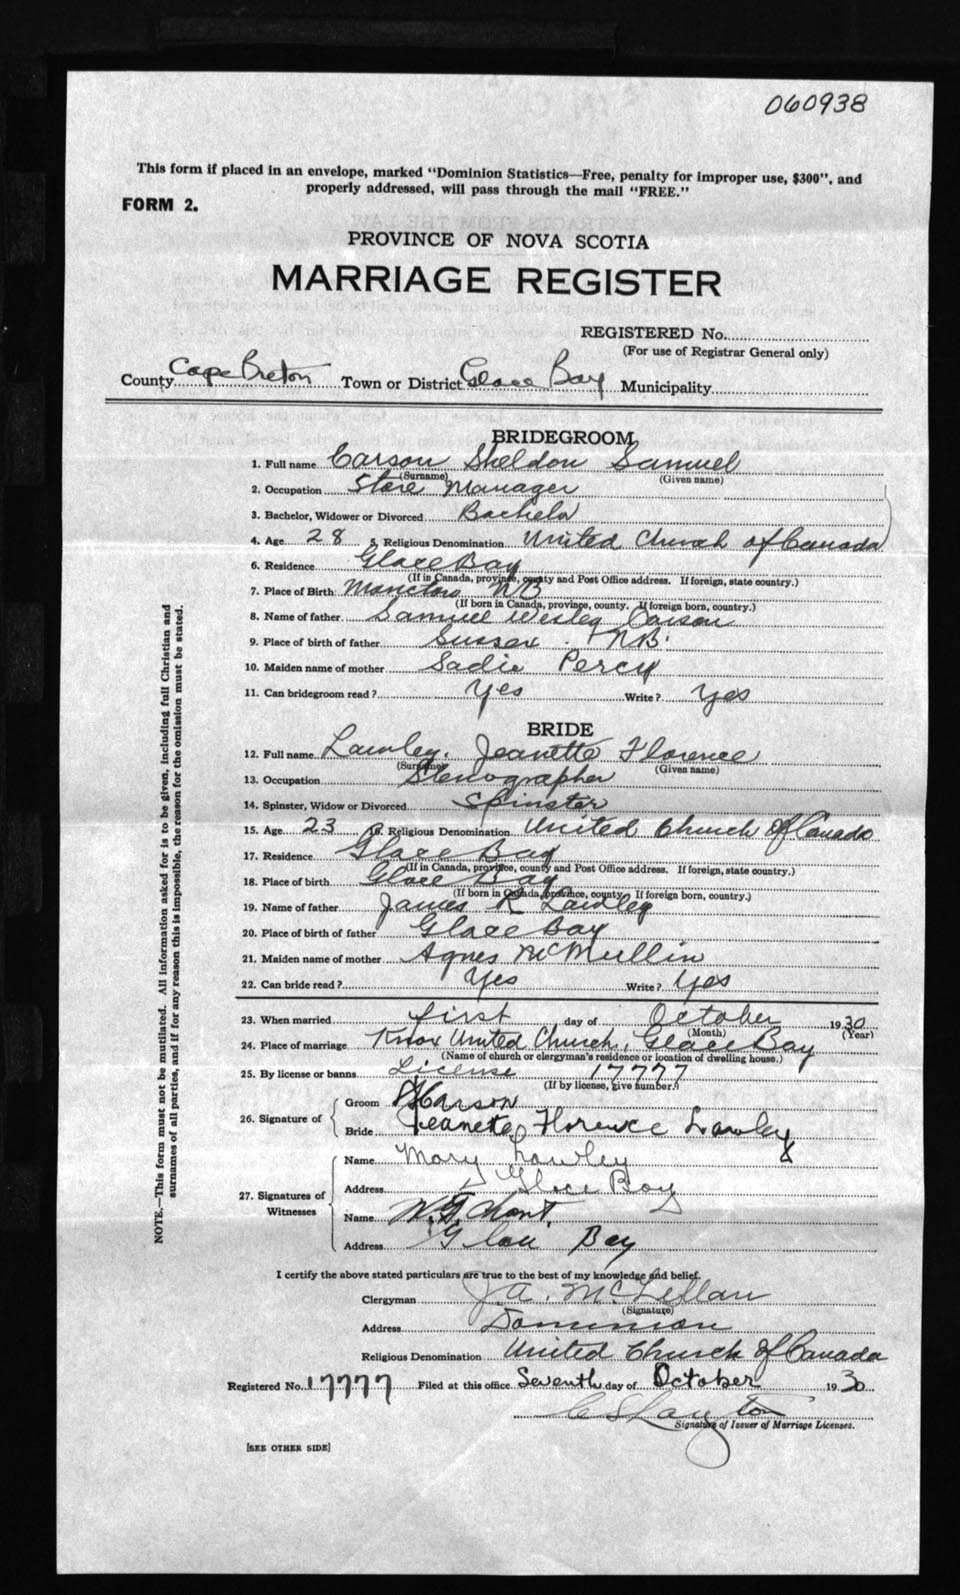 060938
This form if placed in an envelope, marked "Dominion Statistics—Free, penalty for improper use, $300", and
properly addressed, will pass through the mail "FREE."
FORM 2.
PROVINCE OF NOVA SCOTIA
MARRIAGE REGISTER
REGISTERED No.
(For use of Registrar General only)
County Cape Breton Town or District Glace Bay Municipality
BRIDEGROOM
1. Full name Carson Sheldon Samuel
(Surname) (Given name)
2. Occupation Store Manager
3. Bachelor, Widower or Divorced Bachelor
4. Age 28 5. Religious Denomination United Church of Canada
6. Residence Glace Bay
(If in Canada, province, county and Post Office address. If foreign, state country.)
7. Place of Birth Moncton NB
(If born in Canada, province, county. If foreign born, country.)
8. Name of father Samuel Wesley Carson
9. Place of birth of father Sussex NB
10. Maiden name of mother Sadie Percy
11. Can bridegroom read? Yes Write? Yes
BRIDE
12. Full name Lawley, Jeanette Florence
(Surname) (Given name)
13. Occupation Stenographer
14. Spinster, Widow or Divorced Spinster
15. Age 23 16. Religious Denomination United Church of Canada
17. Residence Glace Bay
(If in Canada, province, county and Post Office address. If foreign, state country.)
18. Place of birth Glace Bay
(If born in Canada, province, county. If foreign born, country.)
19. Name of father James R Lawley
20. Place of birth of father Glace Bay
21. Maiden name of mother Agnes McMullin
22. Can bride read? Yes Write? Yes
23. When married first day of October 1930
(Month) (Year)
24. Place of marriage Knox United Church, Glace Bay
(Name of church or clergyman's residence or location of dwelling house.)
25. By license or banns License 17777
(If by license, give number.)
26. Signature of
Groom Carson
Bride Jeanette Florence Lawley
27. Signatures of Witnesses
Name Mary Lawley
Address Glace Bay
Name
Address Glace Bay
I certify the above stated particulars are true to the best of my knowledge and belief.
Clergyman J A. McLellan
(Signature)
Address Dominion
Religious Denomination United Church of Canada
Registered No. 17777 Filed at this office Seventh day of October 1930
C S Layton
Signature of Issuer of Marriage Licenses.
[SEE OTHER SIDE]
NOTE.—This form must not be mutilated. All information asked for is to be given, including full Christian and
surnames of all parties, and if for any reason this is impossible, the reason for the omission must be stated.